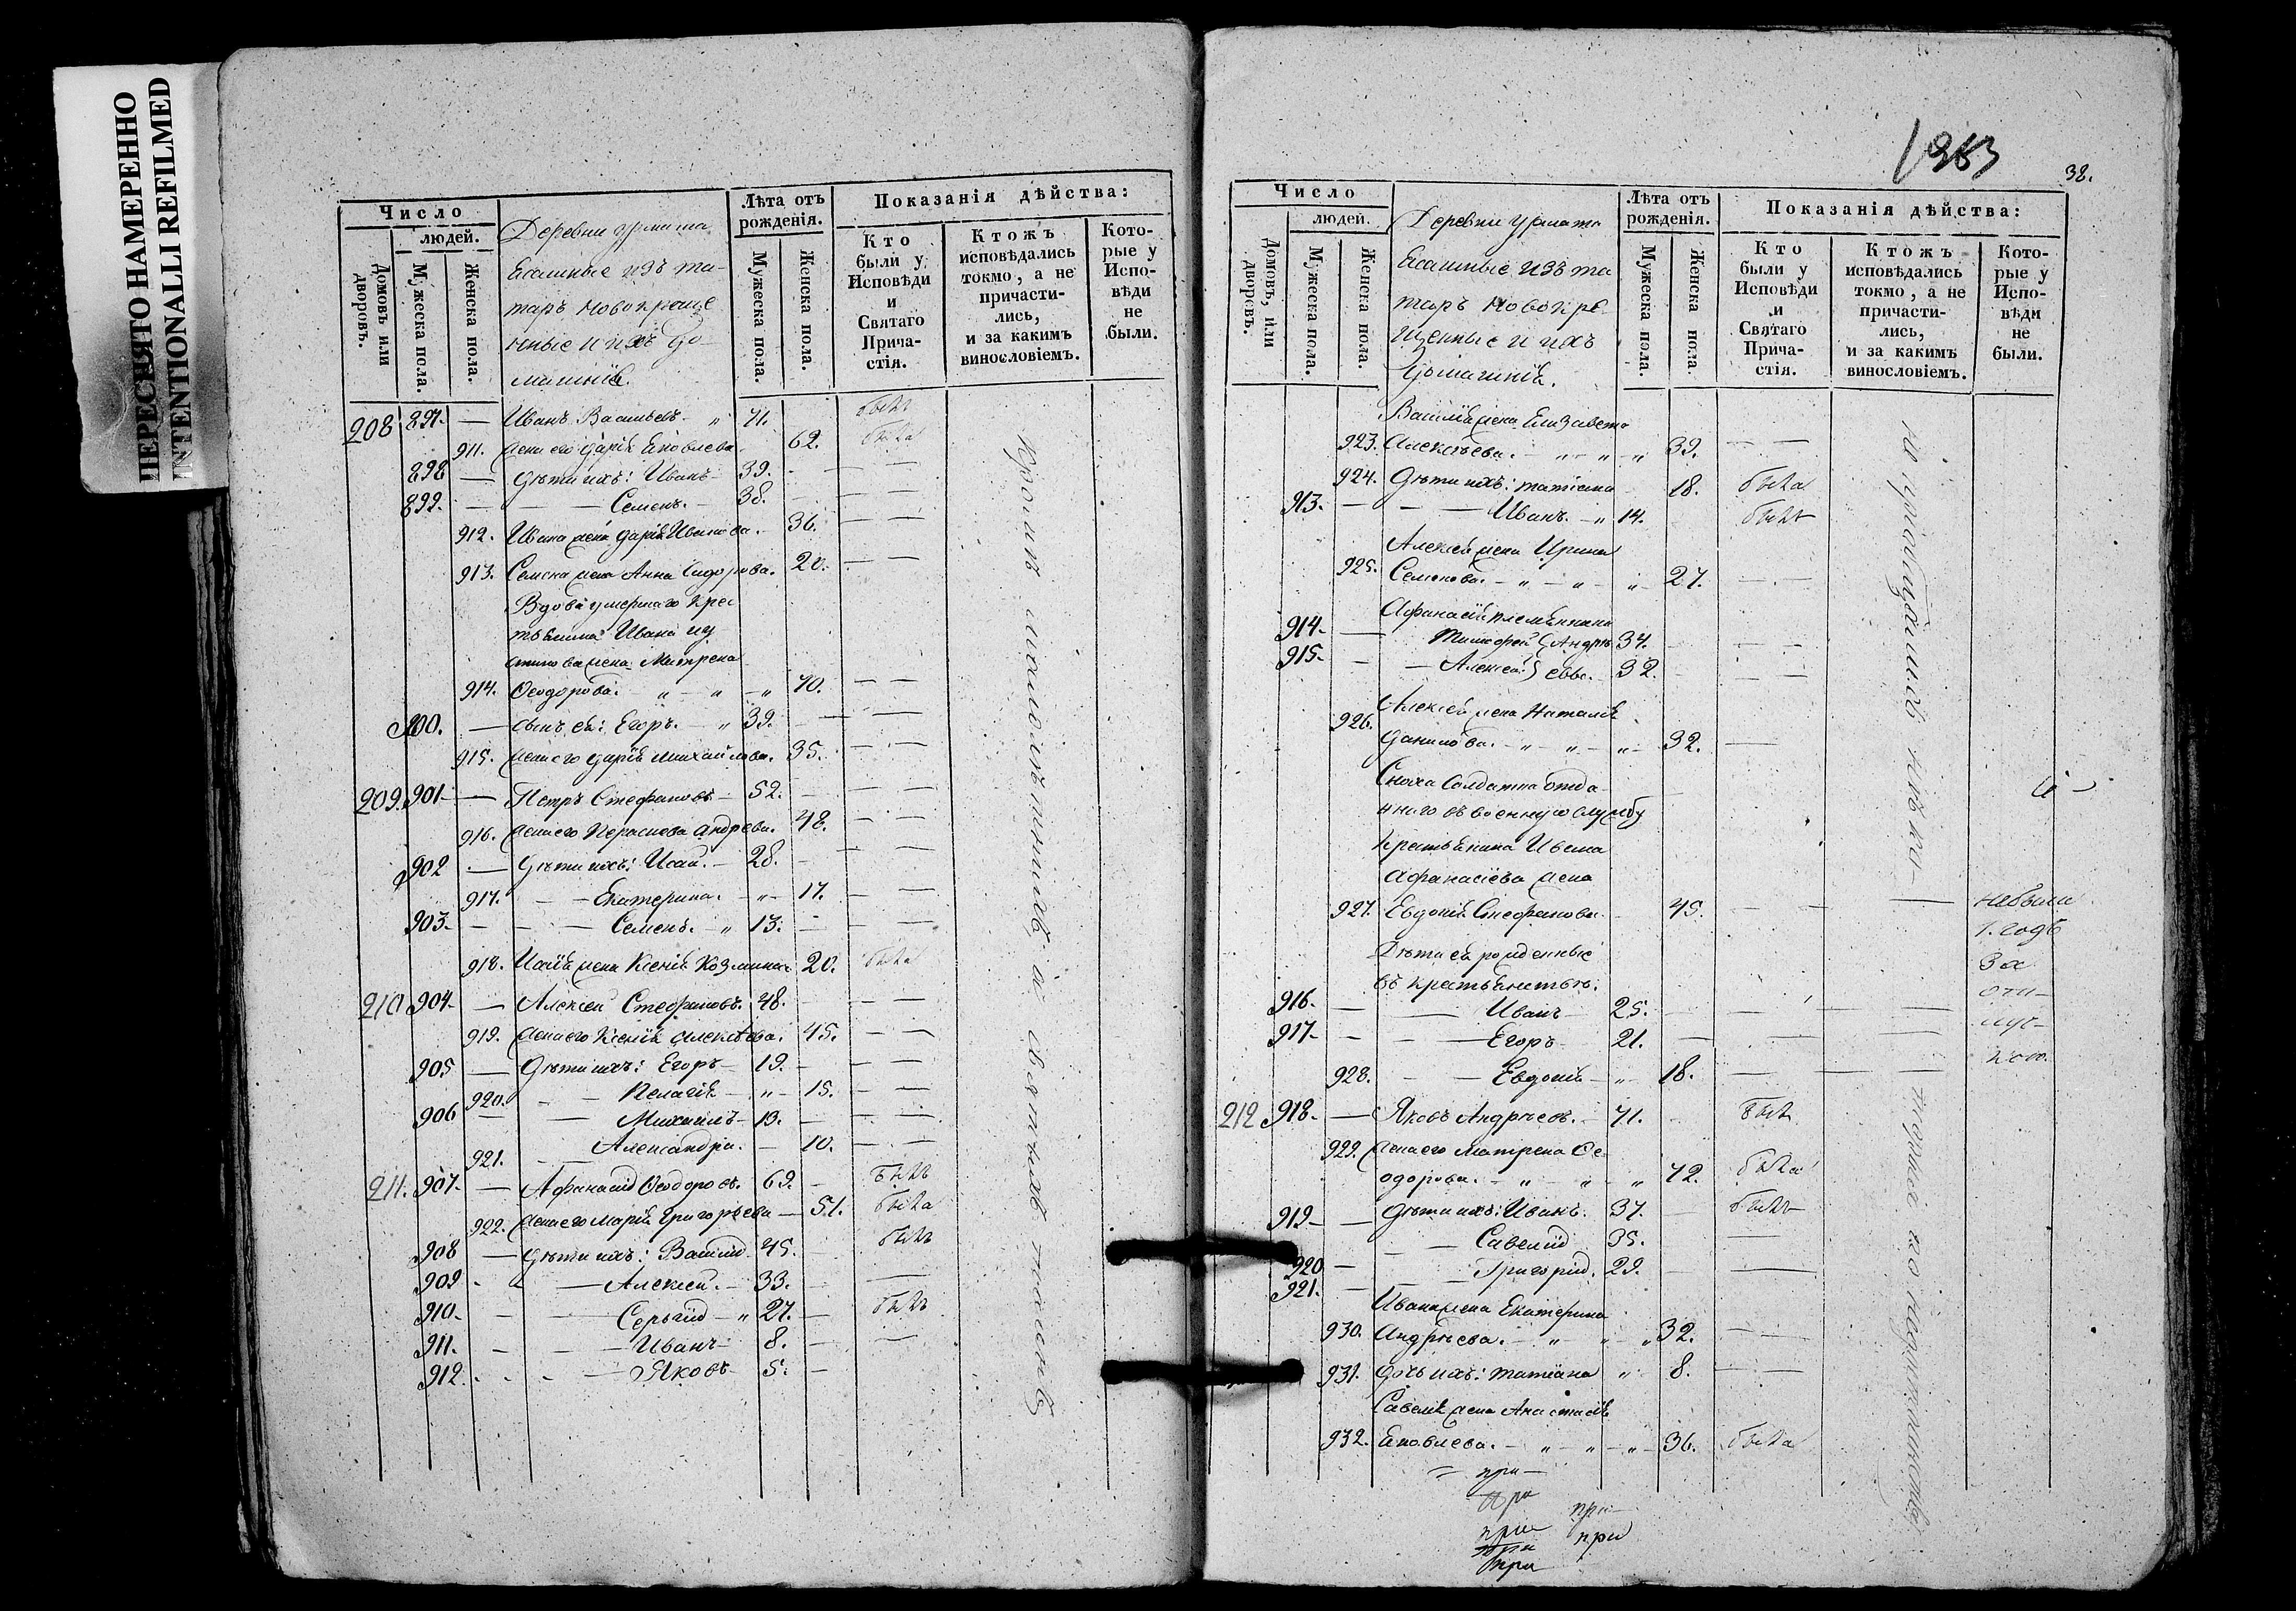 ПЕРЕСНЯТО НАМЕРЕННО
INTENTIONALLI REFILMED
Число
людей.
Домовъ или дворовъ.
Мужеска пола.
Женска пола.
Деревни
Ясашные изъ та-
таръ новокреще
нные и ихъ до-
машнїе.
Лѣта отъ рожденія.
Мужеска пола.
Женска пола.
Показанія дѣйства:
Кто были у Исповѣди и Святаго Причастія.
Ктожъ исповѣдались токмо, а не причастились, и за какимъ винословіемъ.
Которые у Исповѣди не были.
208 897. — Иванъ Васильевъ — " 71. былъ
911. жена его Дарія Яковлева 62. была
898 — Дѣти ихъ: Иванъ 39. — —
899. — — Семенъ. — 38. — —
912. Ивана жена Дарія Иванова. 36. — —
913. Семена жена Анна Сидорова. 20. — —
Вдова умершаго крес
тьянина Ивана
жена Матрена
914. Ѳеодорова. — " — " — " 70. — —
900. — сынъ ея: Егоръ. — " 39. — —
915. жена его Дарія Михайлова. 35. — —
209. 901 — Петръ Стефановъ — 52. — —
916. жена его Андреева. 48. — —
902 — Дѣти ихъ: Исай. — 28. — —
917. — — Екатерина. — " — 17. — —
903 — — — Семенъ. — " 13. — —
918. Исаія жена Ксенія Козмина 20. была
210 904 — Алексей Стефановъ. 48. — —
919. жена его Ксенія Алексѣева. 45. — —
905 — Дѣти ихъ: Егоръ — 19. — —
920. — — Пелагія — " — 15. — —
906 — — Михаилъ — 13. — —
921. — — Александра. — 10. — —
211. 907 — Афанасій Ѳеодоровъ. 69. — былъ
922. жена его Марія Григорьева — 51. была
908 — Дѣти ихъ: Василій 45. былъ
909 — — Алексей. — 33. —
910 — — Сергій — " 27. — былъ
911. — — Иванъ 8. — —
912. — — Яковъ 5. —
1953
38.
Число
людей.
Домовъ, или дворовъ.
Мужеска пола.
Женска пола.
Деревни
Ясашные изъ та
таръ новокре
щенные и ихъ
домашнія.
Лѣта отъ рожденія.
Мужеска пола.
Женска пола.
Показанія дѣйства:
Кто были у Исповѣди и Святаго Причастія.
Ктожъ исповѣдались токмо, а не причастились, и за какимъ винословіемъ.
Которые у Исповѣди не были.
Василія жена Елизавета
923. Алексѣева. — " — " — " 39. — —
924. Дѣти ихъ: Татіана 18. была
913. — — Иванъ. — " 14. былъ
Алексея жена Ирина
925. Семенова. — " — " — " 27. — —
Афанасія племянники
914 — Тимофей Андрѣ 34. — —
915 — — Алексей евы. — 32. — —
Алексея жена Наталія
926. Данилова. — " — " — " 32. —
Сноха солдатка отда
ннаго въ военную службу
крестьянина Ивана
Афанасіева жена
927. Евдокія Стефанова 45. — — — небыли
1. годъ
За
отлу-
кою.
Дѣти ея рожденные
въ крестьянствѣ:
916 — — Иванъ 25. — —
917 — — Егоръ 21. — —
928. — — Евдокія — " — 18. — —
212 918 — Яковъ Андрѣевъ. — 71. былъ
929. жена его Матрена Ѳе-
одорова. — " — " — " 72. была
919 — Дѣти ихъ: Иванъ. 37. былъ
920 — — Савелій 35. —
921. — — Григорій. 29. —
Ивана жена Екатерина
930. Андрѣева. — " — " — " 32. — —
931. Дочь ихъ: Татіана " 8. — —
Савелія жена Анастасія
932. Яковлева. — " — " — " — 36. была
при
при
при
при
при
при
при